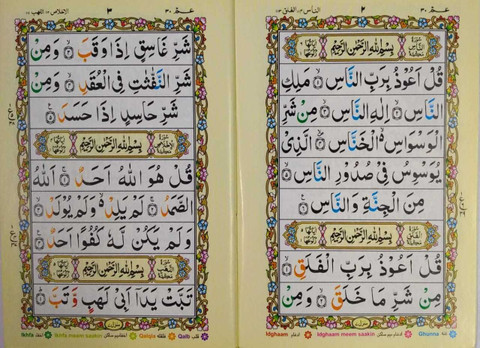 عمّ ٣٠
٢
الناس ١١٤ الفلق ١١٣
بِسْمِ اللّٰهِ الرَّحْمٰنِ الرَّحِيْمِ
قُلْ اَعُوْذُ بِرَبِّ النَّاسِ ۙ مَلِكِ
النَّاسِ ۙ اِلٰهِ النَّاسِ ۙ مِنْ شَرِّ
الْوَسْوَاسِ ۙ الْخَنَّاسِ ۙ الَّذِيْ
يُوَسْوِسُ فِيْ صُدُوْرِ النَّاسِ ۙ
مِنَ الْجِنَّةِ وَالنَّاسِ
بِسْمِ اللّٰهِ الرَّحْمٰنِ الرَّحِيْمِ
قُلْ اَعُوْذُ بِرَبِّ الْفَلَقِ ۙ
مِنْ شَرِّ مَا خَلَقَ ۙ وَمِنْ
Idghaam Idghaam meem saakin Ghunna
عمّ ٣٠
٣
الاخلاص ١١٢ اللهب ١١١
شَرِّ غَاسِقٍ اِذَا وَقَبَ ۙ وَمِنْ
شَرِّ النَّفّٰثٰتِ فِي الْعُقَدِ ۙ وَمِنْ
شَرِّ حَاسِدٍ اِذَا حَسَدَ
بِسْمِ اللّٰهِ الرَّحْمٰنِ الرَّحِيْمِ
قُلْ هُوَ اللّٰهُ اَحَدٌ ۚ اَللّٰهُ
الصَّمَدُ ۚ لَمْ يَلِدْ ۙ وَلَمْ يُوْلَدْ ۙ
وَلَمْ يَكُنْ لَّهٗ كُفُوًا اَحَدٌ
بِسْمِ اللّٰهِ الرَّحْمٰنِ الرَّحِيْمِ
تَبَّتْ يَدَاۤ اَبِيْ لَهَبٍ وَّتَبَّ
Ikhfa Ikhfa meem saakin Qalqala Qalb